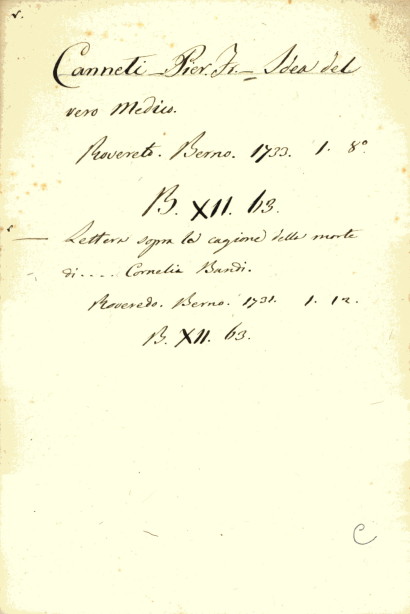 Canneti Pier. Fr. - Idea del
vero Medico.
Rovereto. Berno. 1733. 1. 8°
B. XII. 63.
— Lettera sopra la cagione della morte
di .... Cornelia Bandi.
Roveredo. Berno. 1731. 1. 12.
B. XII. 63.
C